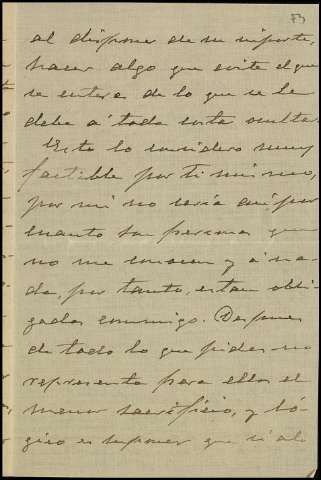 73
al disponer de su importe,
hacer algo que evite el que
se entere de lo que se le
debe á toda costa ocultar.
Esto lo considero muy
factible por ti mismo,
por mi no sería así por
cuanto son personas que
no me conocen y á na-
da, por tanto, estan obli-
gadas conmigo. Despues
de todo lo que pides no
representa para ellos el
menor sacrificio, y ló-
gico es suponer que si al